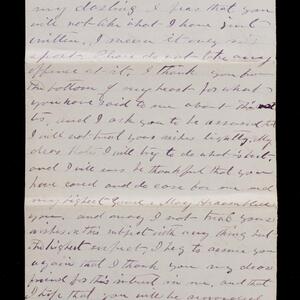 my darling I fear that you
will not like what I have just
written, I mean it only in
sport. Please do not take any
offence at it. I thank you from
the bottom of my heart for what
you have said to me about
to, and I ask you to be assured that
I will not treat your wishes lightly. My
dear I will try to do what is best,
and I will ever be thankful that you
have cared and do care for me and
my highest Good. May Heaven bless
you. and may I not treat your
wishes in this respect with any thing but
the highest respect. I beg to assure you
again that I thank you my dear
friend for this interest in me, and that
I hope that you will be